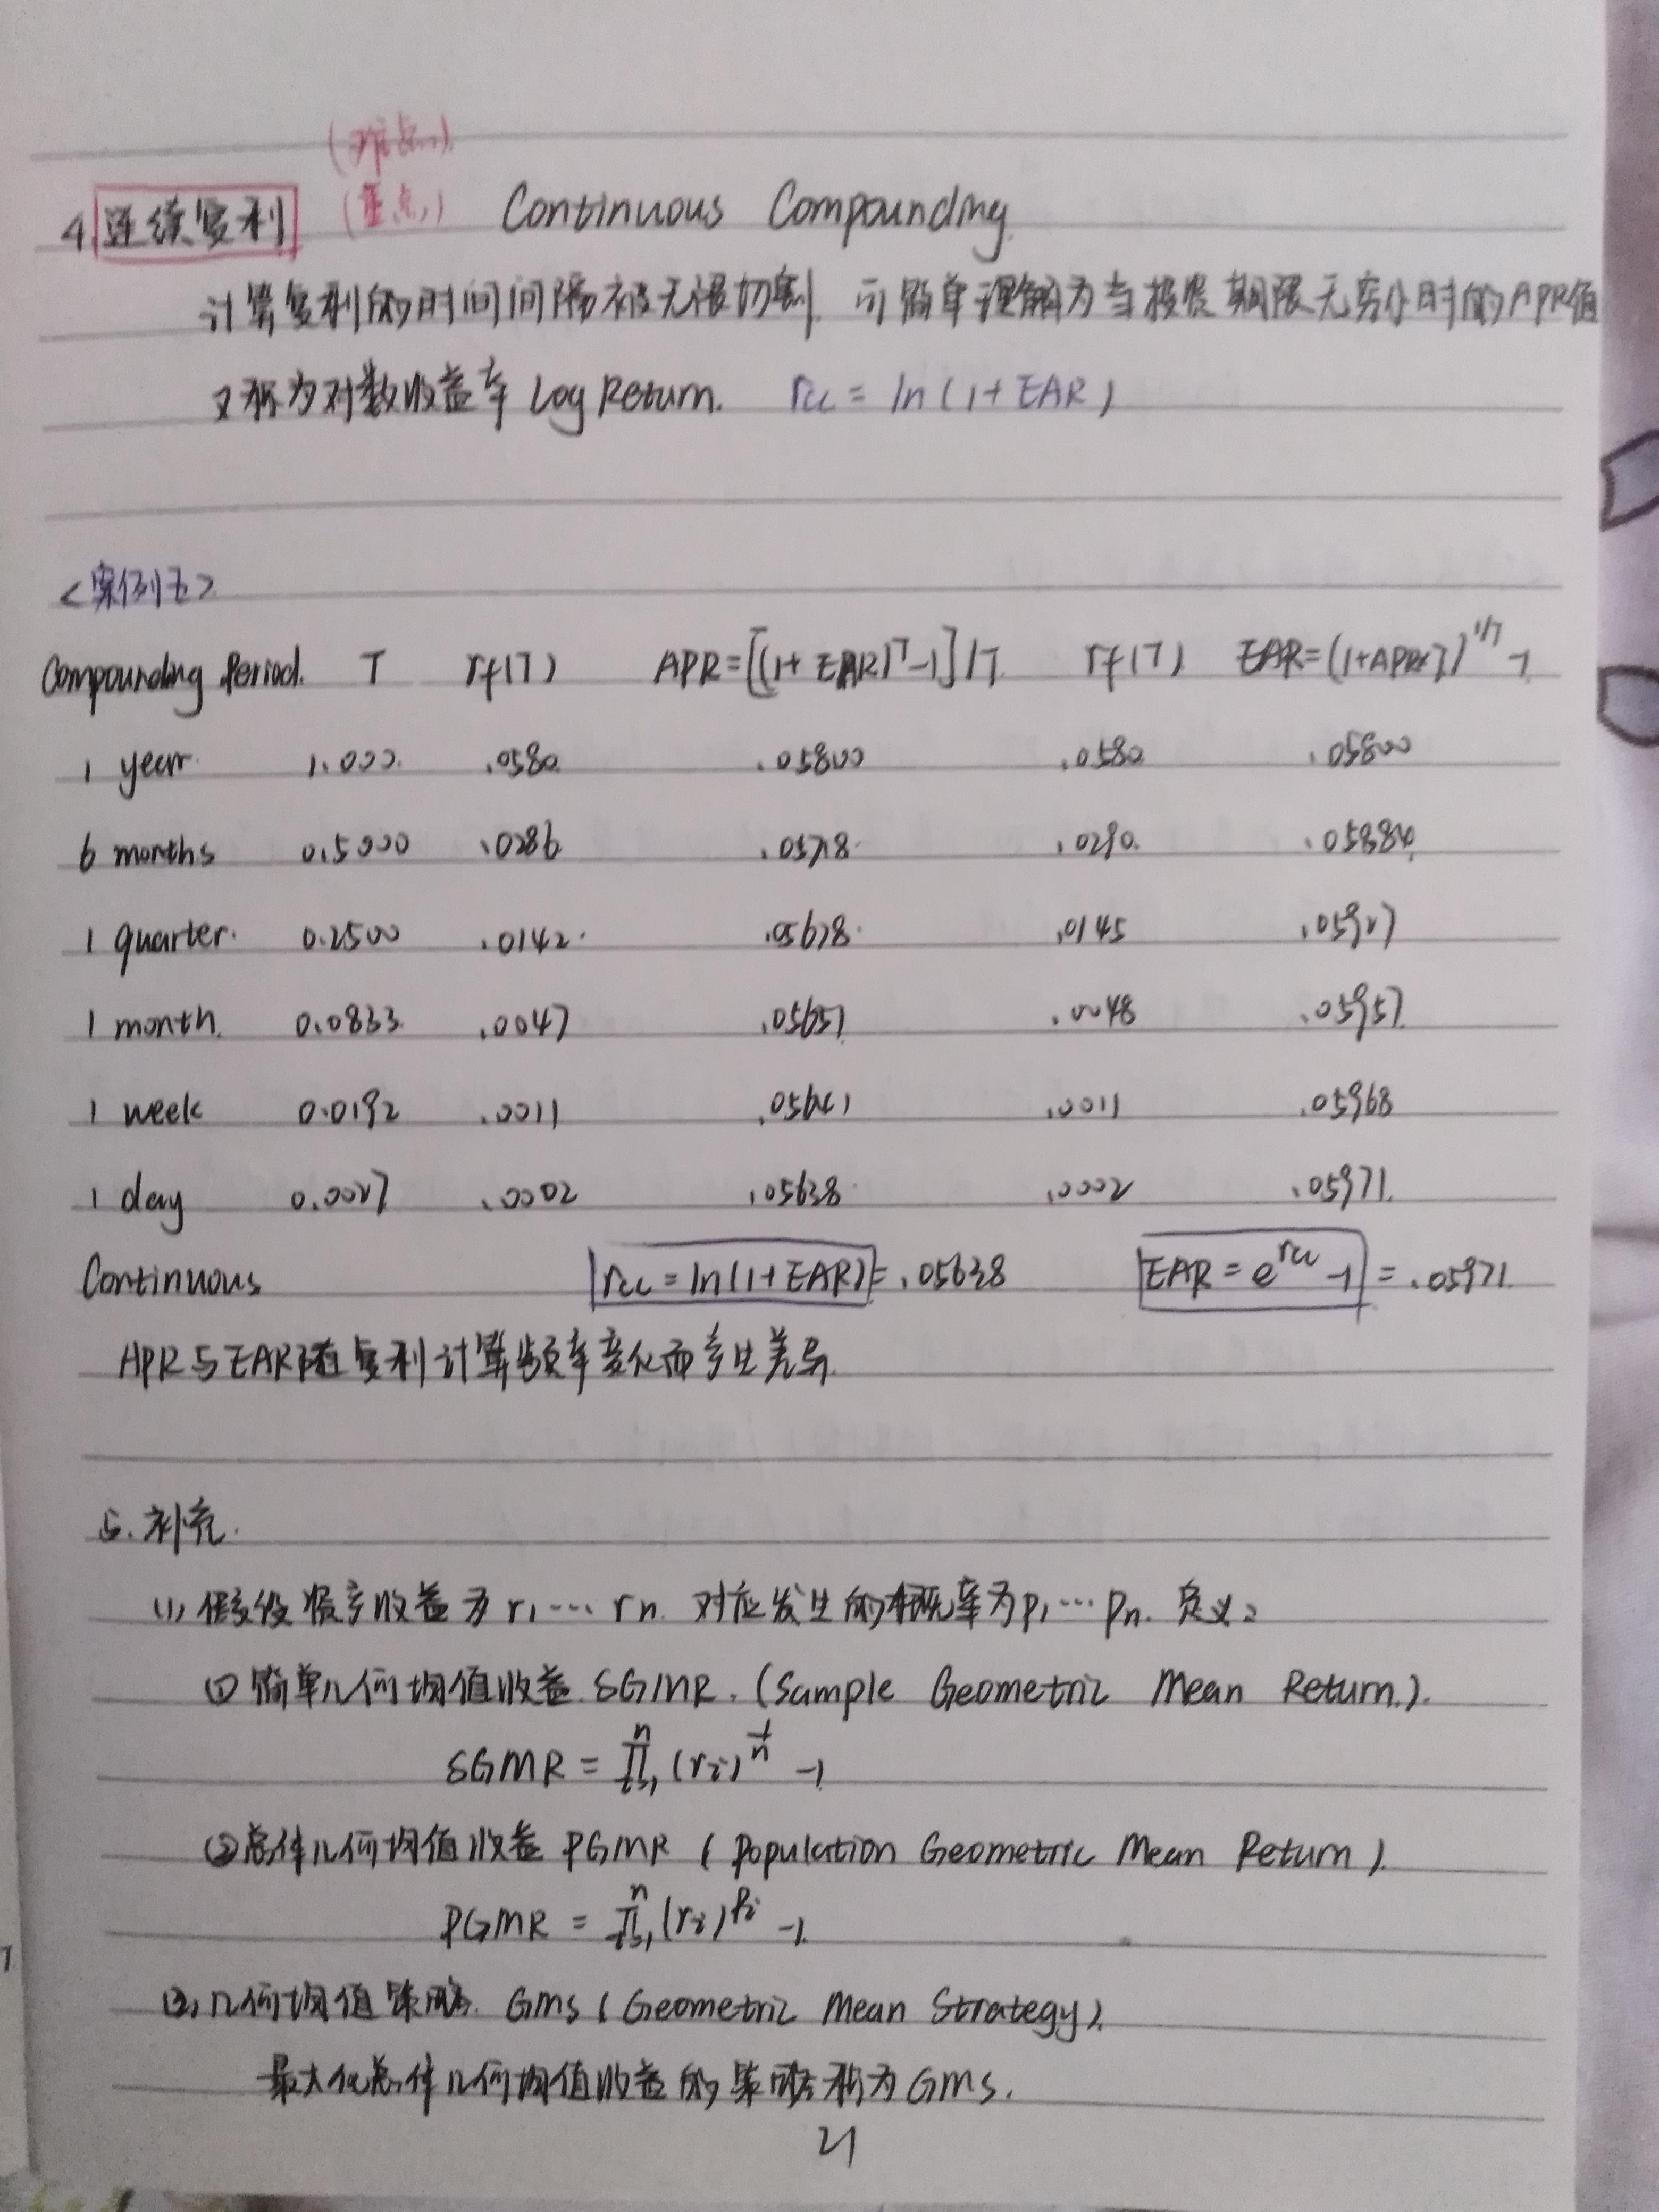 (难点)
4.连续复利 (重点) Continuous Compounding
计算复利的时间间隔被无限切割,可简单理解为当投资期限无穷小时的APR值
又称为对数收益率 Log Return. rcc = ln(1+EAR)
<案例五>
Compounding Period. T rf(T) APR=[(1+EAR)^T-1]/T rf(T) EAR=(1+APR×T)^1/T-1
1 year 1.000 .0580 .05800 .0580 .05800
6 months 0.5000 .0286 .05718 .0290 .05884
1 quarter 0.2500 .0142 .05678 .0145 .05927
1 month 0.0833 .0047 .05651 .0048 .05957
1 week 0.0192 .0011 .05641 .0011 .05968
1 day 0.0027 .0002 .05638 .0002 .05971
Continuous rcc=ln(1+EAR)=.05638 EAR=e^rcc-1=.05971
APR与EAR随复利计算频率变化而产生差异
5.补充.
(1)假设资产收益为r1…rn.对应发生的概率为p1…pn.定义:
①简单几何均值收益 SGMR.(Sample Geometric Mean Return).
SGMR = ∏ⁿᵢ₌₁(ri)^1/n -1
②总体几何均值收益 PGMR (Population Geometric Mean Return).
PGMR = ∏ⁿᵢ₌₁(ri)^pi -1
(2)几何均值策略 GMS (Geometric Mean Strategy).
最大化总体几何均值收益的策略称为GMS.
21